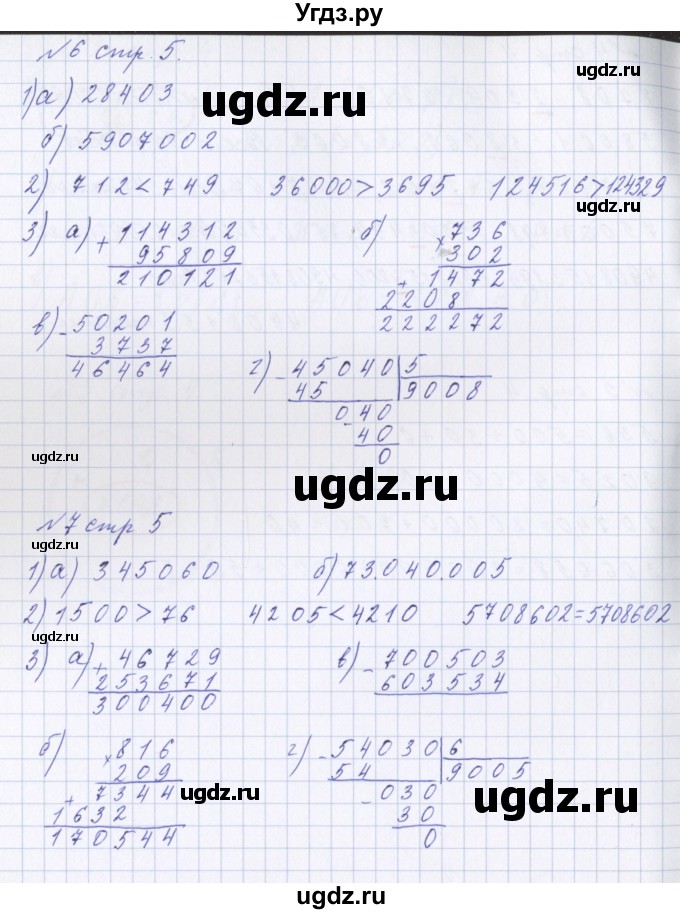 Угдз.ру
№6 стр. 5.
ugdz.ru
1) а) 28403
ugdz.ru
б) 5907002
2) 712 < 749 36000 > 3695 124516 > 124329
ugdz.ru
3) а) + 114312
95809
210121
б) × 736
302
+ 1472
2208
222272
в) - 50201
3737
46464
г) - 45040 | 5
45 9008
- 040
40
0
ugdz.ru
ugdz.ru
№7 стр 5
ugdz.ru
1) а) 345060 б) 73.040.005
2) 1500 > 76 4205 < 4210 5708602 = 5708602
ugdz.ru
3) а) + 46729
253671
300400
в) - 700503
603534
б) × 816
209
+ 7344
1632
170544
г) - 54030 | 6
54 9005
- 030
30
0
ugdz.ru
ugdz.ru
ugdz.ru